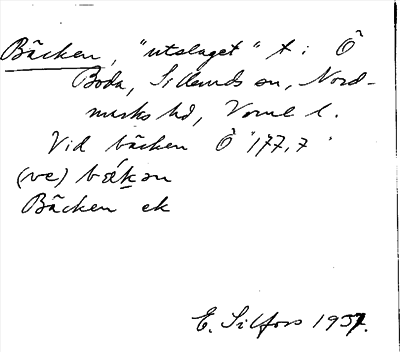 Bäcken, "utslaget" t. i Ö
Boda, Silleruds sn, Nord-
marks hd, Vrml l.
Vid bäcken Ö 177,7
(ve) bäkən
Bäcken ek
E. Silfors 1937.